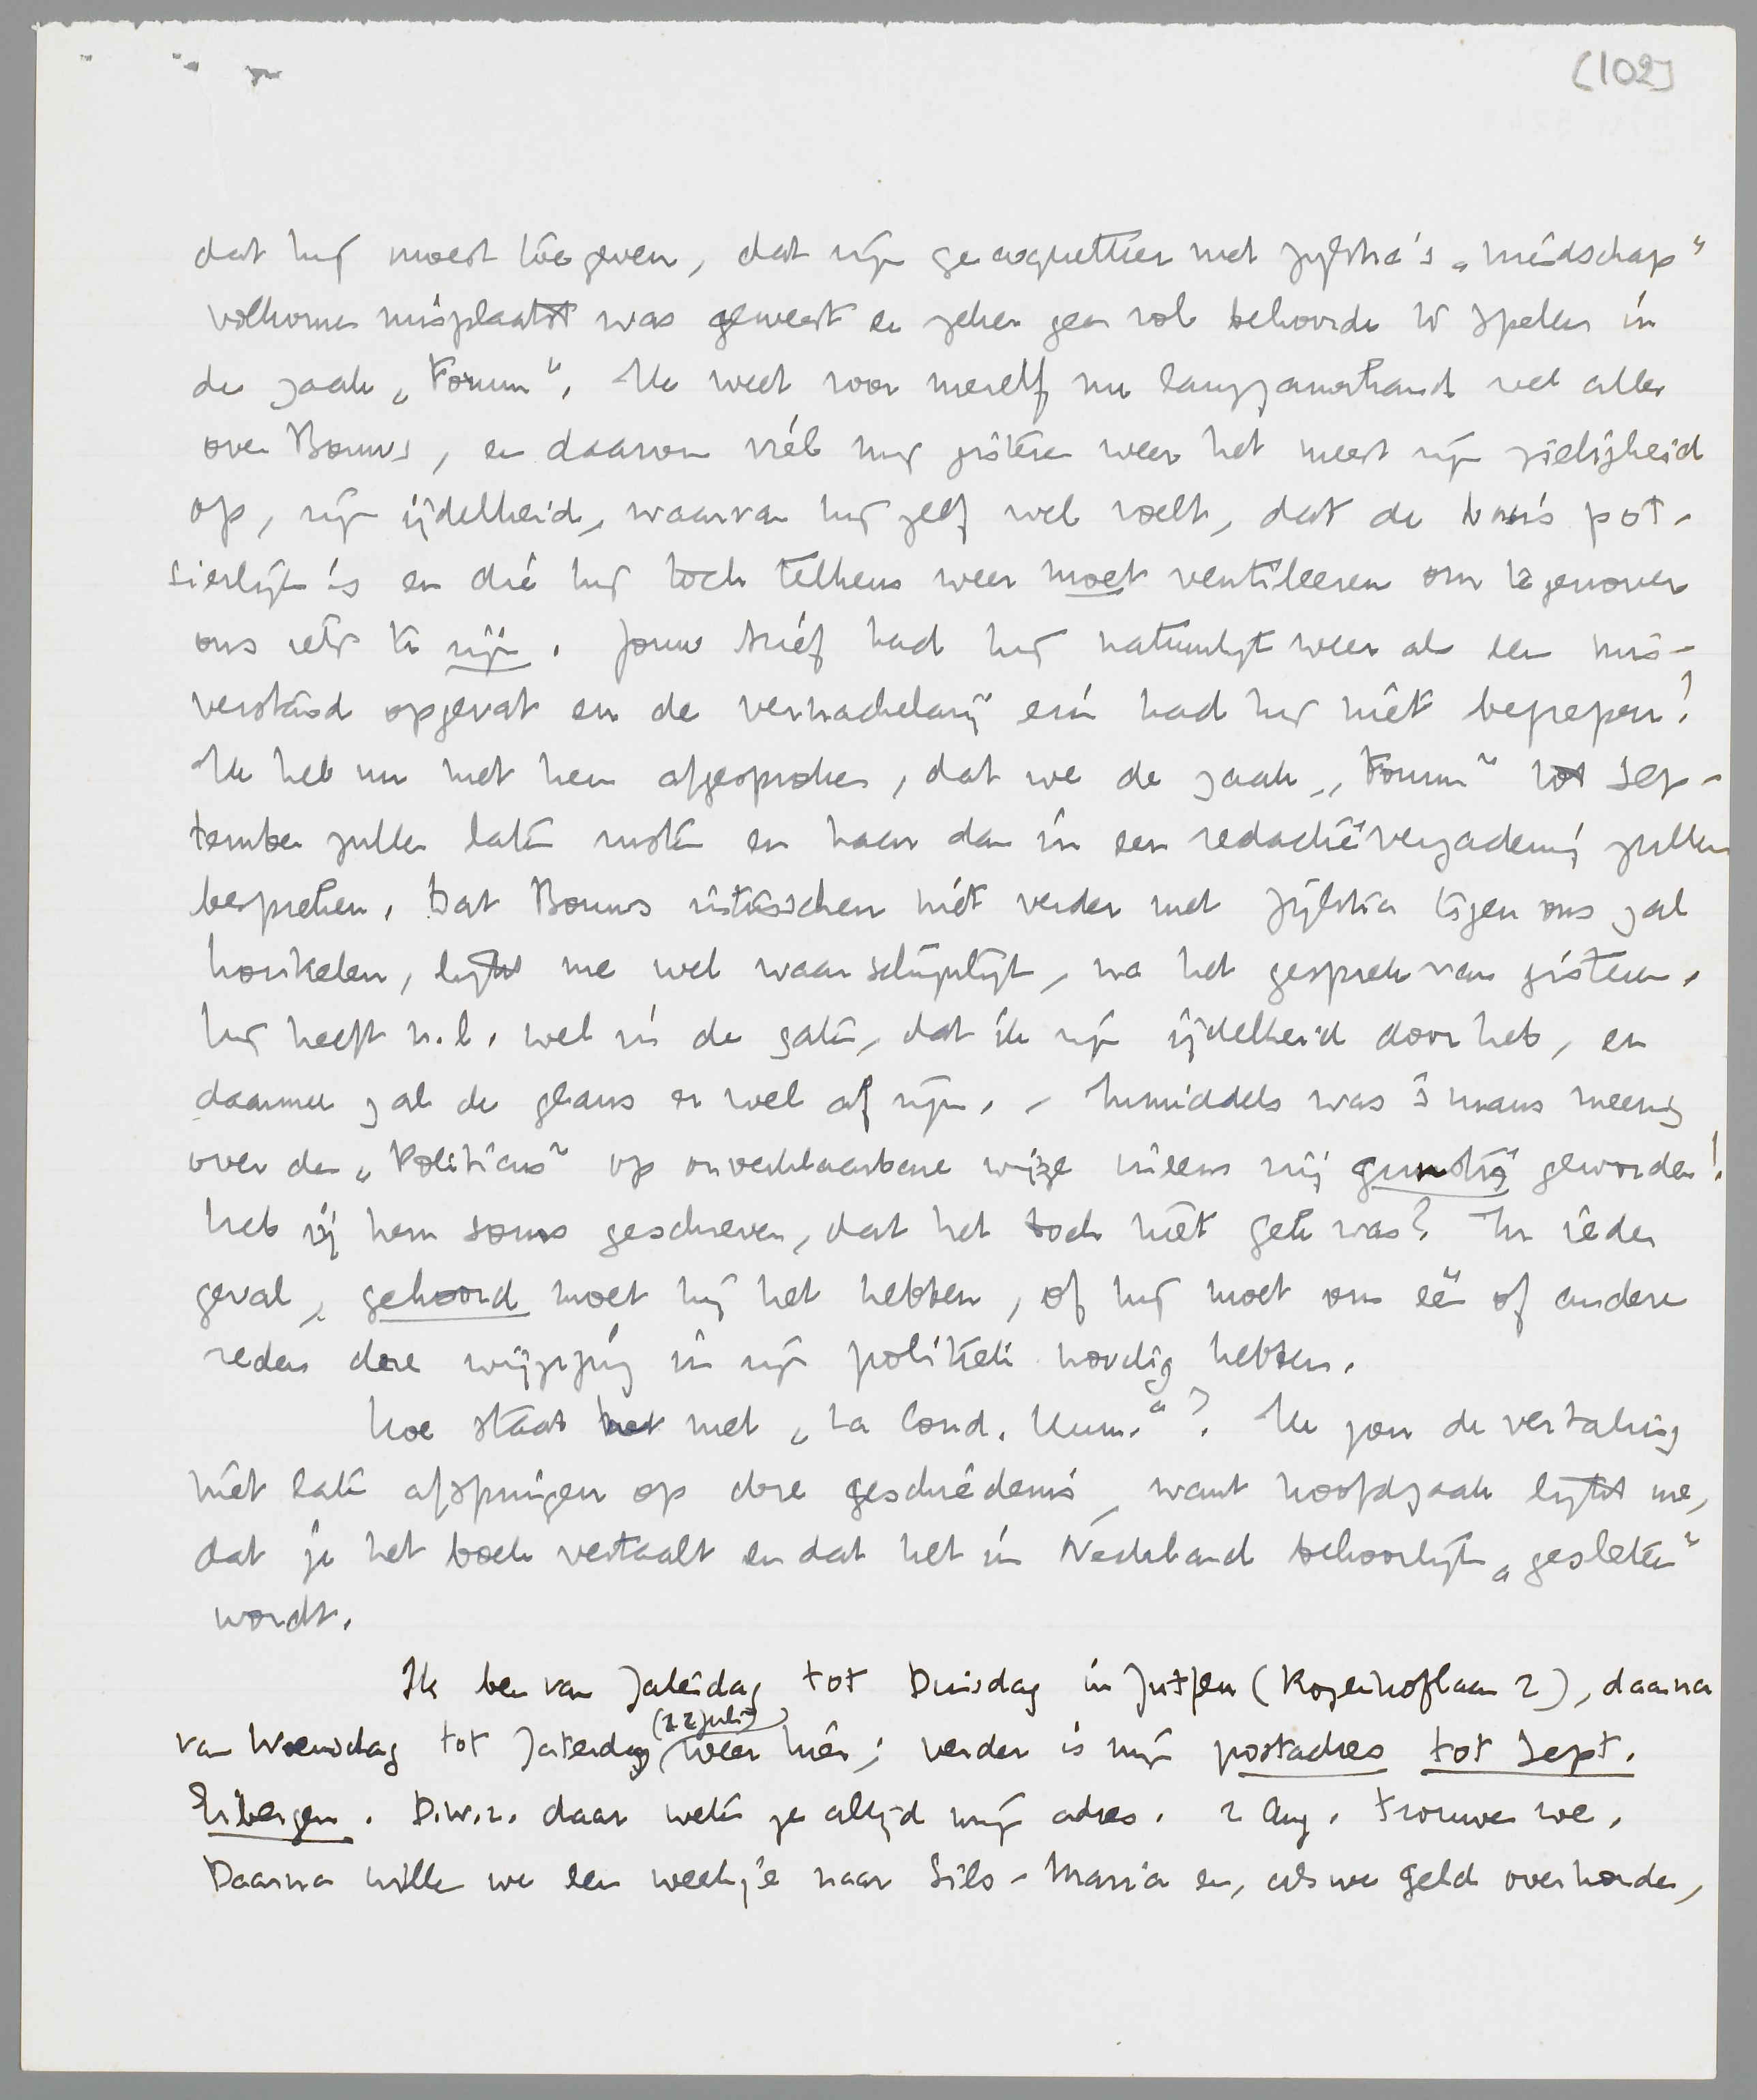 (102)
dat hij moest toegeven, dat zijn gecoquetteer met Zijlstra's „niedschap"
volkomen misplaatst was geweest en zeker geen rol behoorde te spelen in
de zaak „Forum". Ik weet voor mezelf nu langzamerhand wel alles
over Bouws, en daarvan viel mij gisteren weer het meest zijn zieligheid
op, zijn ijdelheid, waarvan hij zelf wel voelt, dat de basis pot-
sierlijk is en die hij toch telkens weer moet ventileeren om tegenover
ons iets te zijn. Jouw brief had hij natuurlijk weer als een mis-
verstand opgevat en de verhachelarij erin had hij niet begrepen!
Ik heb nu met hem afgesproken, dat we de zaak „Forum" tot Sep-
tember zullen laten rusten en haar dan in een redactievergadering zullen
bespreken. Dat Bouws intusschen niet verder met Zijlstra tegen ons zal
konkelen, lijkt me wel waarschijnlijk, na het gesprek van gisteren.
Hij heeft n.l. wel in de gaten, dat ik zijn ijdelheid door heb, en
daarmee zal de glans er wel af zijn. - Inmiddels was 's mans meening
over de „Politicus" op onverklaarbare wijze ineens vrij gunstig geworden!
Heb jij hem soms geschreven, dat het toch niet gek was? In ieder
geval, gehoord moet hij het hebben, of hij moet om één of andere
reden deze wijziging in zijn politiek noodig hebben.
Hoe staat het met „La Cond. Hum."? Ik zou de vertaling
niet laten afspringen op deze geschiedenis, want hoofdzaak lijkt me,
dat je het boek vertaalt en dat het in Nederland behoorlijk „gesleten"
wordt.
Ik ben van Zaterdag tot Dinsdag in Zutfen (Rozenhoflaan 2), daarna
van Woensdag tot Zaterdag (22 juli) weer hier; verder is mijn postadres tot Sept.
Eibergen. D.w.z. daar weten ze altijd mijn adres. 2 Aug. trouwen we.
Daarna willen we een weekje naar Sils-Maria en, als we geld overhouden,